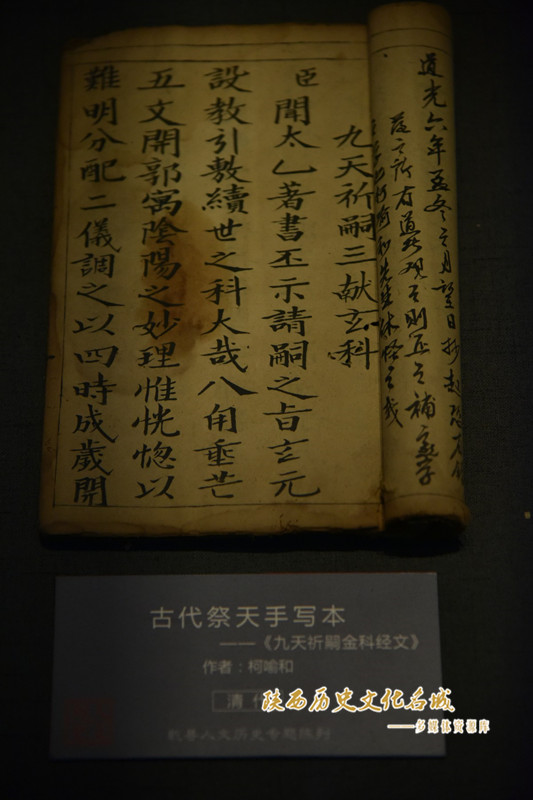 道光六年孟冬之月望日抄起
九天祈嗣三献玄科
臣聞太乙著書丕示請嗣之旨玄元
設教引敷續世之科大哉八角垂芒
五文開郭寓陰陽之妙理惟恍惚以
難明分配二儀調之以四時成歲開
古代祭天手写本
——《九天祈嗣金科经文》
作者：柯喻和
清
陕西历史文化名城
——多媒体资源库